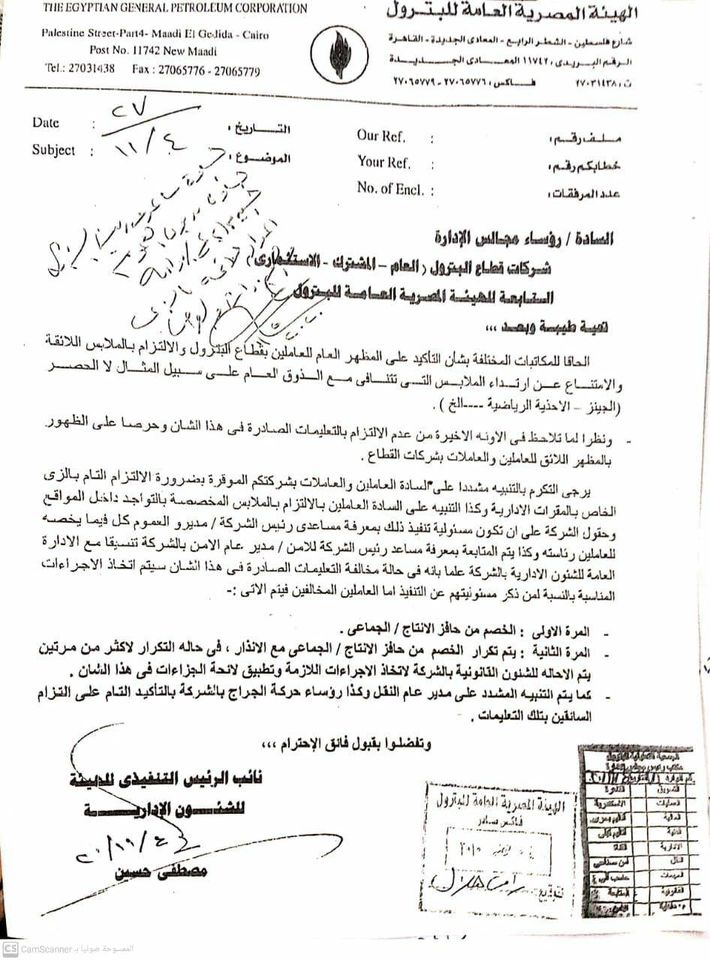 THE EGYPTIAN GENERAL PETROLEUM CORPORATION
Palestine Street-Part4- Maadi El Gedida - Cairo
Post No. 11742 New Maadi
Tel.: 27031438 Fax : 27065776 - 27065779
الهيئة المصرية العامة للبترول
شارع فلسطين - الشطر الرابع - المعادى الجديدة - القاهرة
الرقم البريدى : ١١٧٤٢ المعادى الجديدة
ت : ٢٧٠٣١٤٣٨ فاكس : ٢٧٠٦٥٧٧٦ - ٢٧٠٦٥٧٧٩
Date : ٢٧ التاريخ :
Subject : ١١/٤ الموضوع :
Our Ref. : ملف رقم :
Your Ref. : خطابكم رقم :
No. of Encl. : عدد المرفقات :
السادة / رؤساء مجالس الإدارة
شركات قطاع البترول ( العام - المشترك - الاستثمارى )
التابعة للهيئة المصرية العامة للبترول
تحية طيبة وبعد ،،،
الحاقا للمكاتبات المختلفة بشأن التأكيد على المظهر العام للعاملين بقطاع البترول والالتزام بالملابس اللائقة
والامتناع عن ارتداء الملابس التى تتنافى مع الذوق العام على سبيل المثال لا الحصر
(الجينز - الاحذية الرياضية ----الخ ) .
- ونظرا لما تلاحظ فى الاونه الاخيرة من عدم الالتزام بالتعليمات الصادرة فى هذا الشان وحرصا على الظهور
بالمظهر اللائق للعاملين والعاملات بشركات القطاع .
يرجى التكرم بالتنبيه مشددا على السادة العاملين والعاملات بشركتكم الموقرة بضرورة الالتزام التام بالزى
الخاص بالمقرات الادارية وكذا التنبيه على السادة العاملين بالالتزام بالملابس المخصصة بالتواجد داخل المواقع
وحقول الشركة على ان تكون مسئولية تنفيذ ذلك بمعرفة مساعدى رئيس الشركة / مديرو العموم كل فيما يخصه
للعاملين رئاسته وكذا يتم المتابعة بمعرفة مساعد رئيس الشركة للامن / مدير عام الامن بالشركة تنسيقا مع الادارة
العامة للشئون الادارية بالشركة علما بانه فى حالة مخالفة التعليمات الصادرة فى هذا الشان سيتم اتخاذ الاجراءات
المناسبة بالنسبة لمن ذكر مسئوليتهم عن التنفيذ اما العاملين المخالفين فيتم الاتى :-
- المرة الاولى : الخصم من حافز الانتاج / الجماعى .
- المرة الثانية : يتم تكرار الخصم من حافز الانتاج / الجماعى مع الانذار ، فى حاله التكرار لاكثر من مرتين
يتم الاحاله للشئون القانونية بالشركة لاتخاذ الاجراءات اللازمة وتطبيق لائحة الجزاءات فى هذا الشان .
- كما يتم التنبيه المشدد على مدير عام النقل وكذا رؤساء حركة الجراج بالشركة بالتأكيد التام على التزام
السائقين بتلك التعليمات .
وتفضلوا بقبول فائق الإحترام ،،،
نائب الرئيس التنفيذى للهيئة
للشئون الإدارية
مصطفى حسين
الهيئة المصرية العامة للبترول
فاكس صادر
توقيع
CS CamScanner الممسوحة ضوئيا بـ